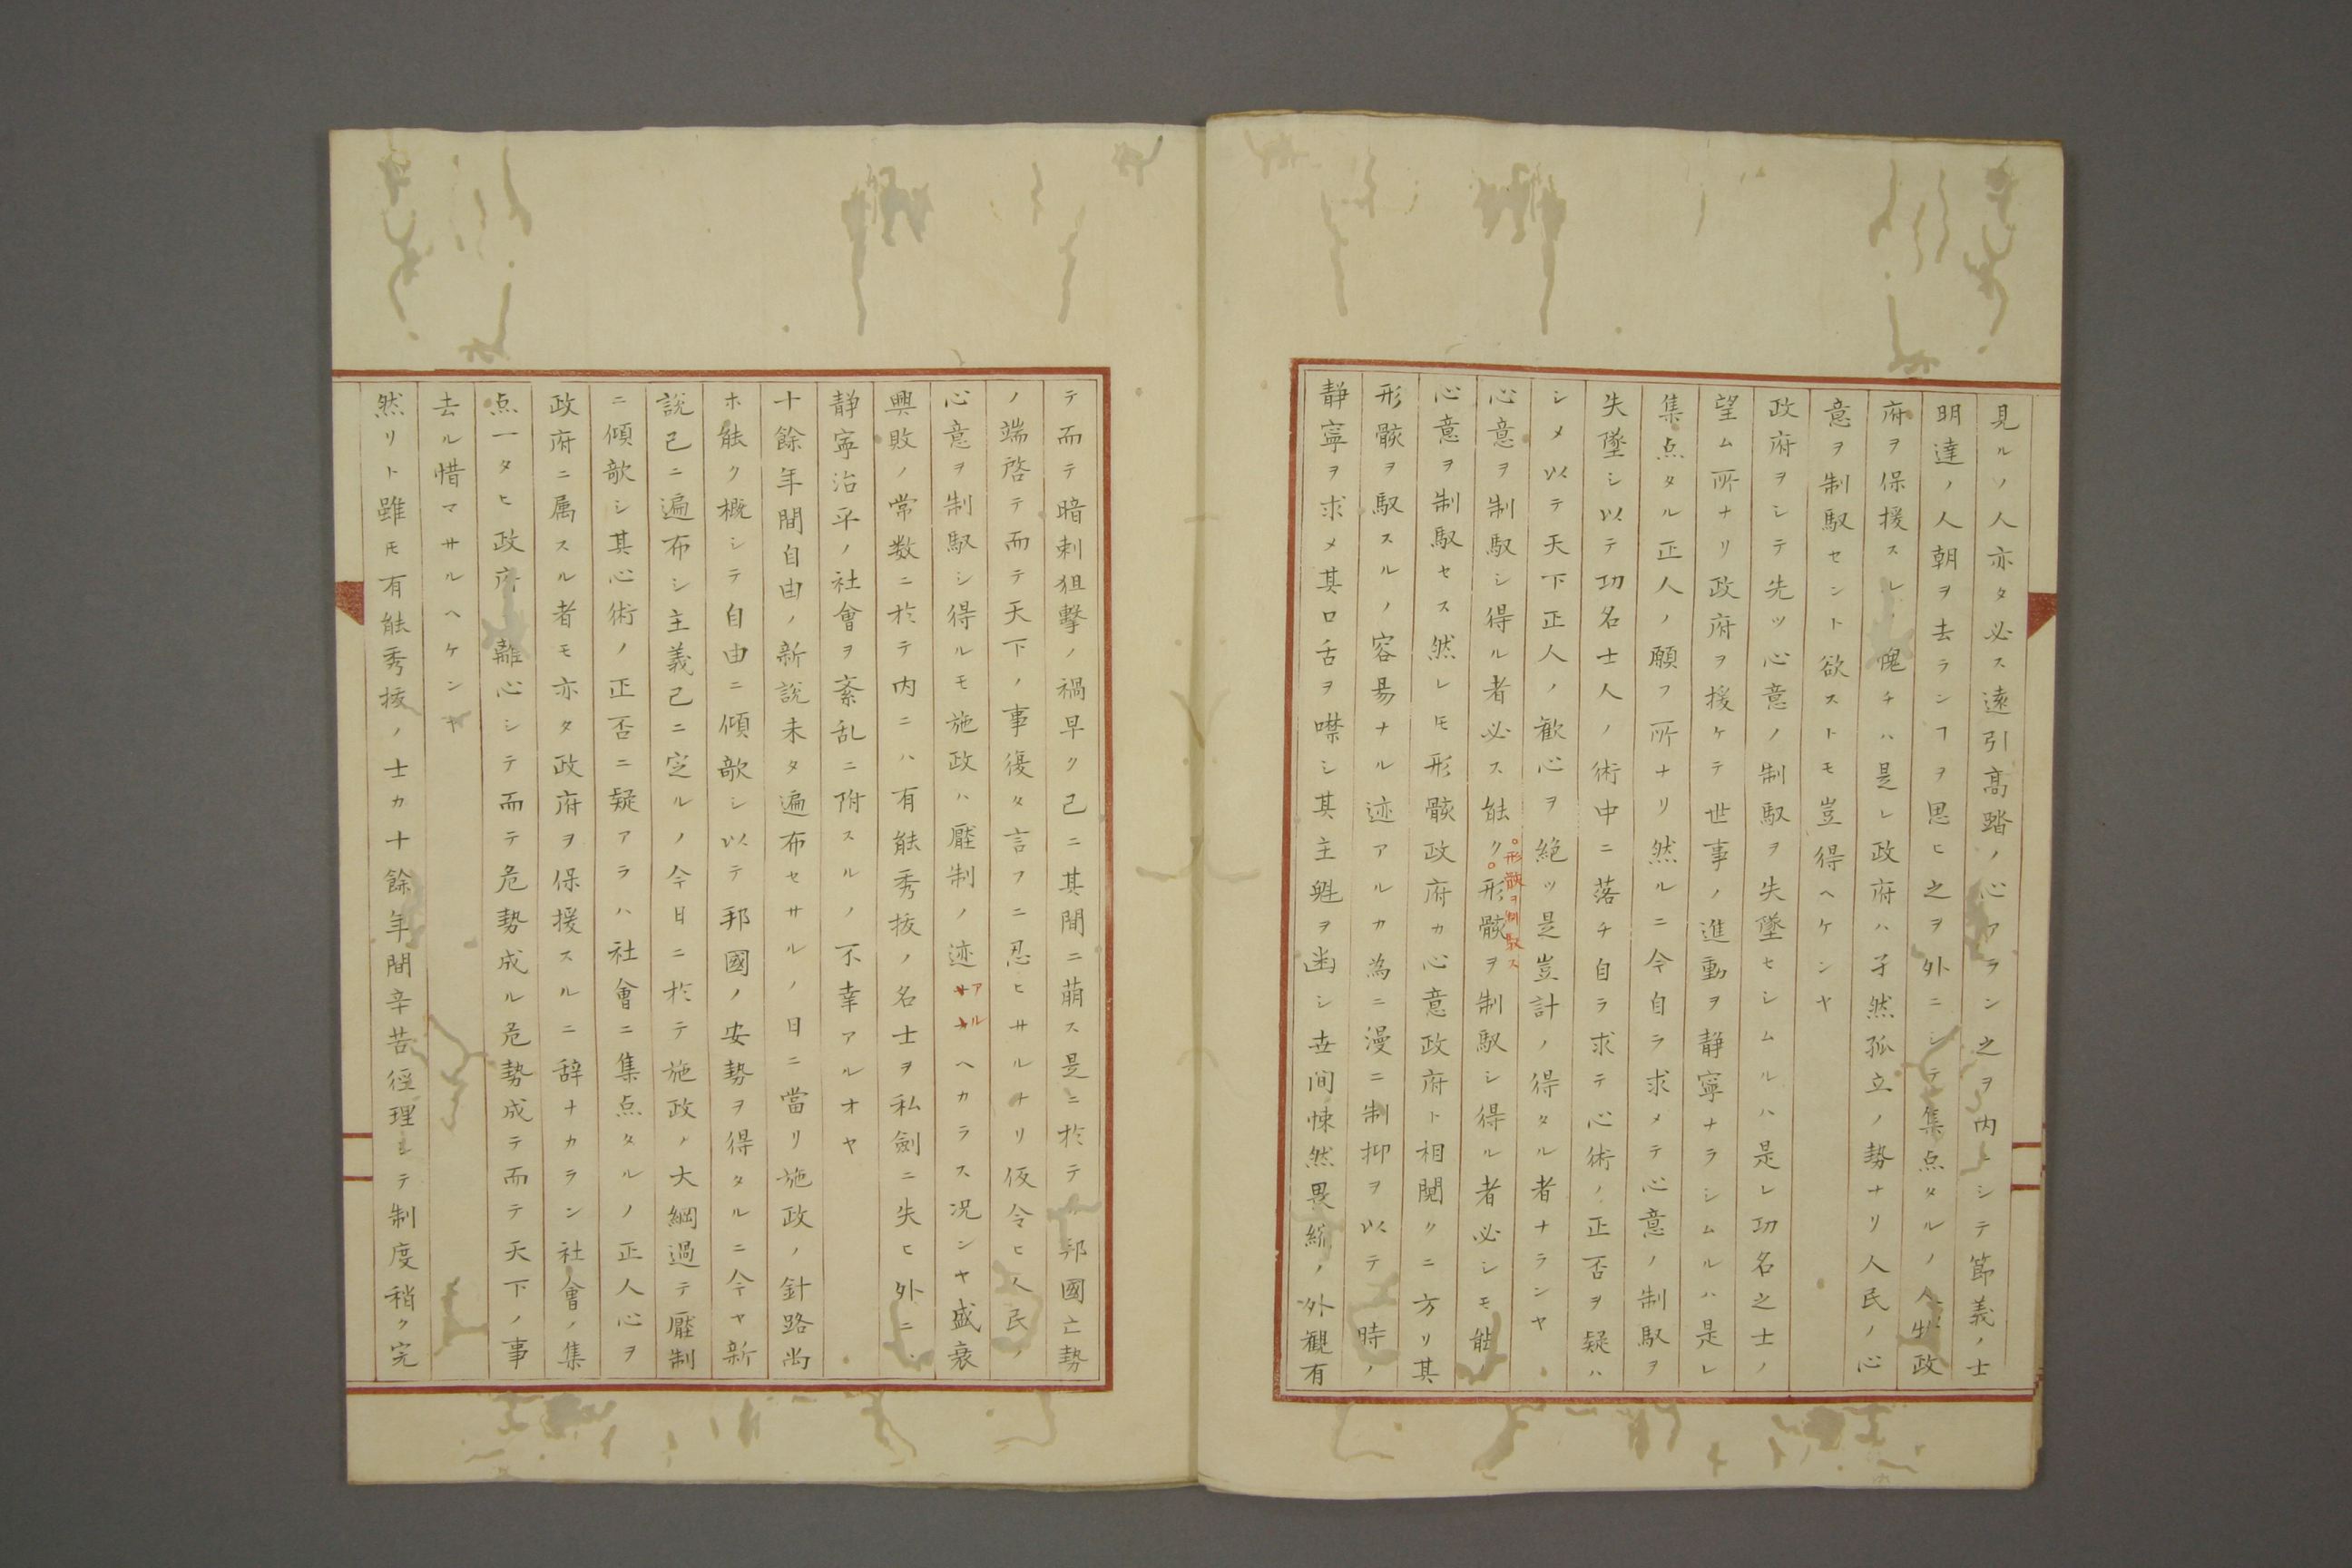 見ルノ人亦タ必ス遠引高踏ノ心アラン之ヲ内ニシテ節義ノ士
明達ノ人朝ヲ去ランヿヲ思ヒ之ヲ外ニシテ集点タルノ人政
府ヲ保援スレ愧チハ是レ政府ハ孑然孤立ノ勢ナリ人民ノ心
意ヲ制馭セント欲ストモ豈得ヘケンヤ
政府ヲシテ先ツ心意ノ制馭ヲ失墜セシムルハ是レ功名之士ノ
望ム所ナリ政府ヲ援ケテ世事ノ進動ヲ静寧ナラシムルハ是レ
集点タル正人ノ願フ所ナリ然ルニ今自ラ求メテ心意ノ制馭ヲ
失墜シ以テ功名士人ノ術中ニ落チ自ラ求テ心術ノ正否ヲ疑ハ
シメ以テ天下正人ノ歓心ヲ絶ツ是豈計ノ得タル者ナランヤ
心意ヲ制馭シ得ル者必ス能ク形骸ヲ制馭ス形骸ヲ制馭シ得ル者必シモ能ク
心意ヲ制馭セス然レㇳモ形骸政府カ心意政府ト相鬩クニ方リ其
形骸ヲ馭スルノ容易ナル迹アルカ為ニ漫ニ制抑ヲ以テ時ノ
静寧ヲ求メ其口舌ヲ噤シ其主魁ヲ幽シ世间悚然畏縮ノ外観有
テ而テ暗刺狙撃ノ禍早ク已ニ其間ニ萠ス是ニ於テカ邦國亡勢
ノ端啓テ而テ天下ノ事復タ言フニ忍ヒサルナリ仮令ヒ人民ノ
心意ヲ制馭シ得ルモ施政ハ壓制ノ迹アルヘカラス况ンヤ盛衰
興敗ノ常数ニ於テ内ニハ有能秀抜ノ名士ヲ私劍ニ失ヒ外ニハ
静寧治平ノ社會ヲ紊乱ニ附スルノ不幸アルオヤ
十餘年間自由ノ新説未タ遍布セサルノ日ニ當リ施政ノ針路尚
ホ能ク概シテ自由ニ傾欹シ以テ邦國ノ安勢ヲ得タルニ今ヤ新
説已ニ遍布シ主義已ニ定ルノ今日ニ於テ施政ノ大綱過テ壓制
ニ傾欹シ其心術ノ正否ニ疑アラハ社會ニ集点タルノ正人心ヲ
政府ニ属スル者モ亦タ政府ヲ保援スルニ辞ナカラン社會ノ集
点一タヒ政府離心シテ而テ危勢成ル危勢成テ而テ天下ノ事
去ル惜マサルヘケンヤ
然リト雖モ有能秀抜ノ士カ十餘年間辛苦徑理シテ制度稍ク完